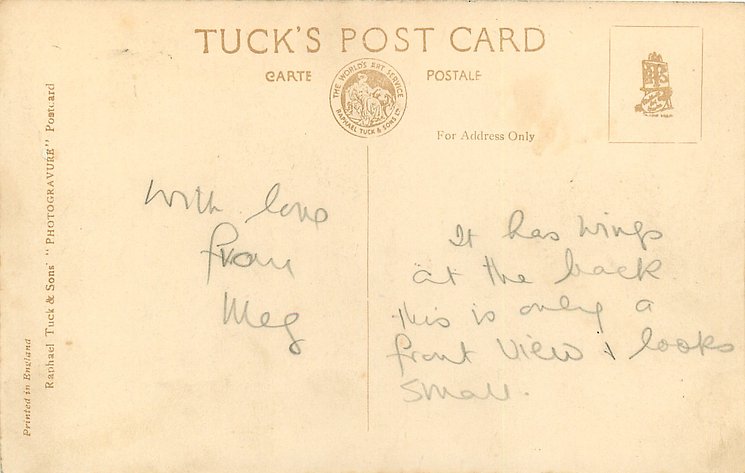 TUCK'S POST CARD
CARTE POSTALE
THE WORLD'S ART SERVICE
RAPHAEL TUCK & SONS LD
For Address Only
Raphael Tuck & Sons' "PHOTOGRAVURE" Postcard
Printed in England
With love
from
Meg
It has wings
at the back
this is only a
front view & looks
small.